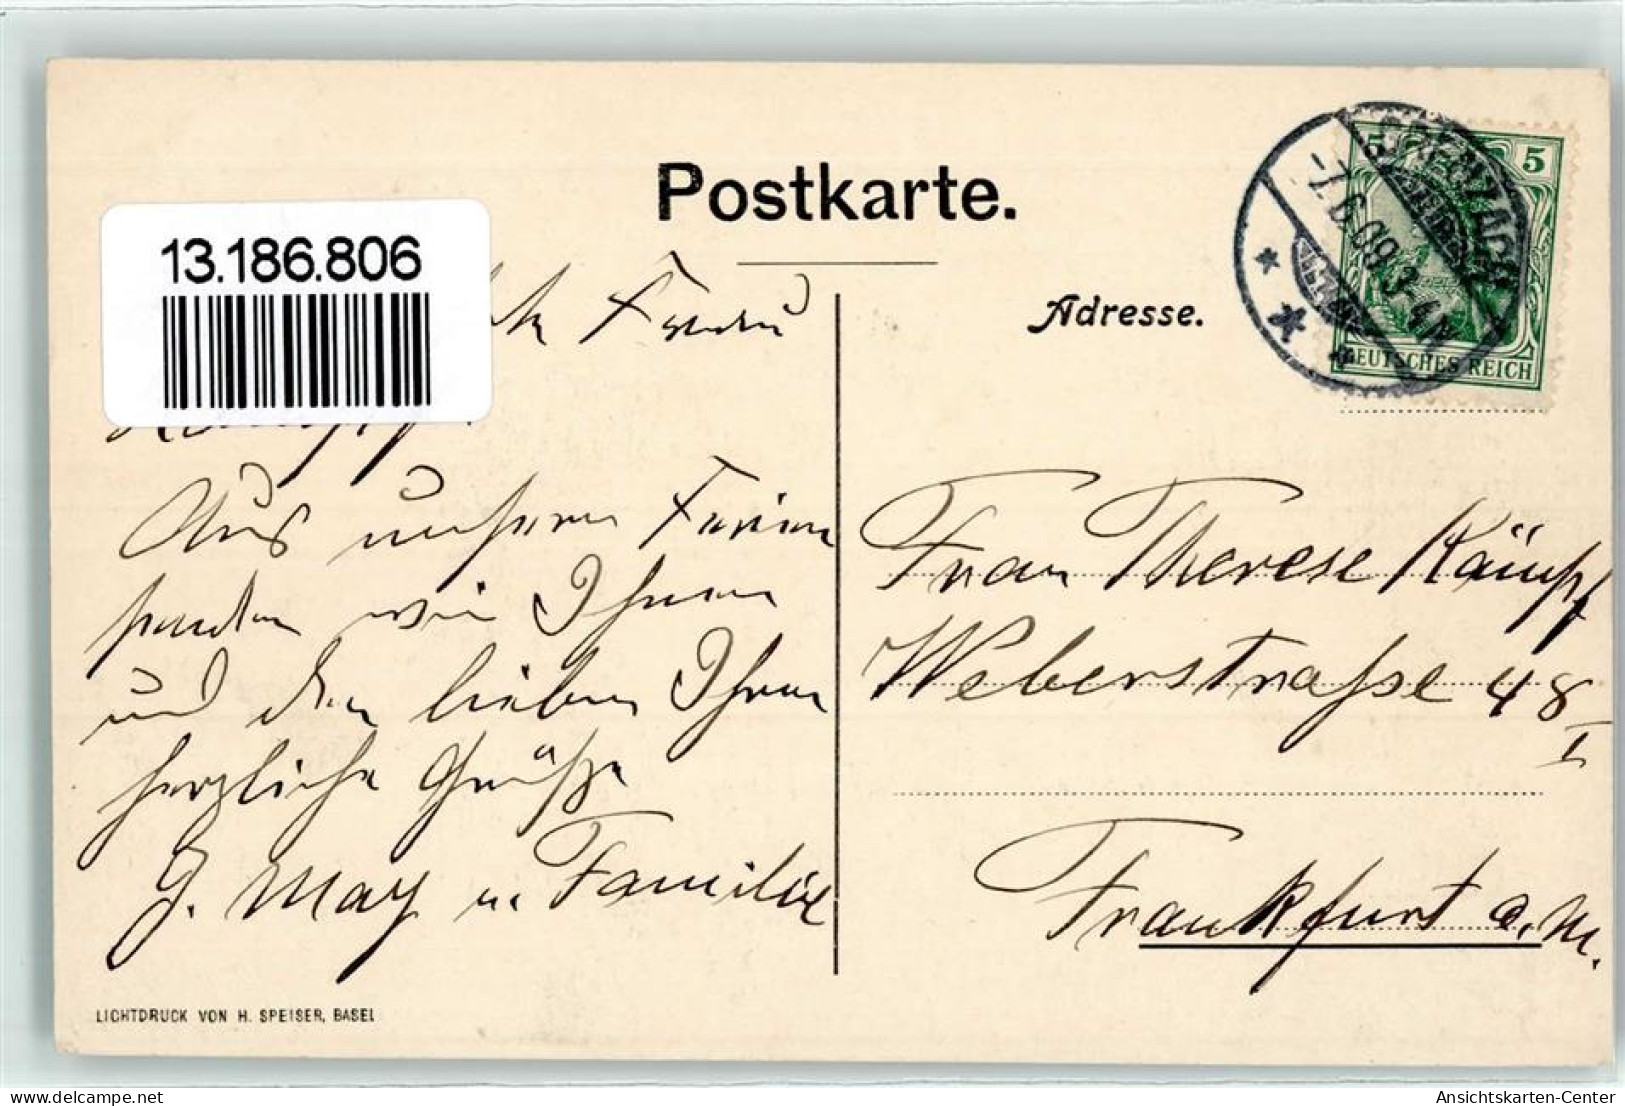 Postkarte.
13.186.806
Frau
Adresse.
5 5
GRENZACH
-7.6.09.3-4N
DEUTSCHES REICH
Aus unseren Ferien
senden wir Ihnen
und den lieben Ihren
herzliche Grüße
J. May u. Familie
Frau Therese Kämpf
Weberstraße 48
I
Frankfurt a. M.
LICHTDRUCK VON H. SPEISER, BASEL
Ansichtskarten-Center